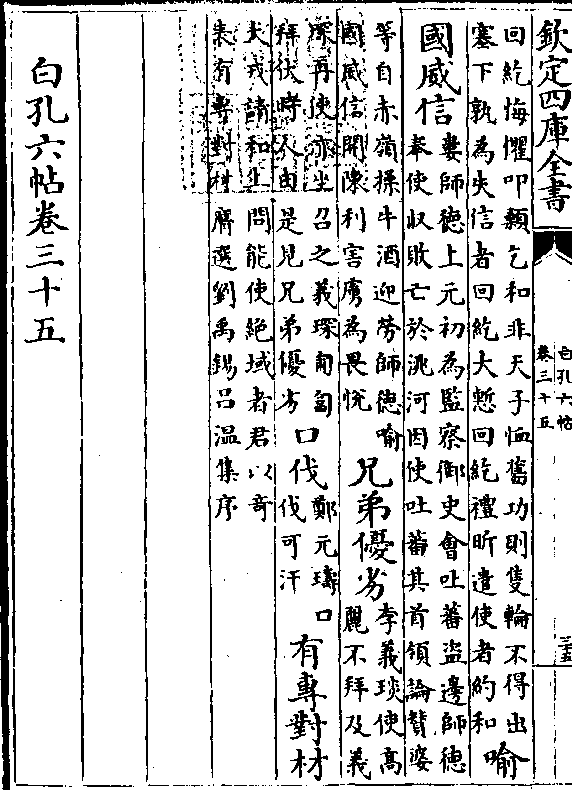 欽定四庫全書
白孔六帖
卷三十五
三五
回紇悔懼叩顙乞和非天子恤舊功則隻輪不得出
塞下孰為失信者回紇大慙回紇禮昕遣使者約和
喻
國威信
婁師德上元初為監察御史會吐蕃盜邊師德
奉使收敗亡於洮河因使吐蕃其首領論贊婆
等自赤嶺操牛酒迎勞師德喻
國威信開陳利害虜為畏悅
兄弟優劣
李義琰使高
麗不拜及義
琛再使亦坐召之義琛匍匐
拜伏時人由是見兄弟優劣
口伐
鄭元璹口
伐可汗
有專對材
犬戎請和上問能使絕域者君以奇
表有專對材膺選劉禹錫呂溫集序
白孔六帖卷三十五